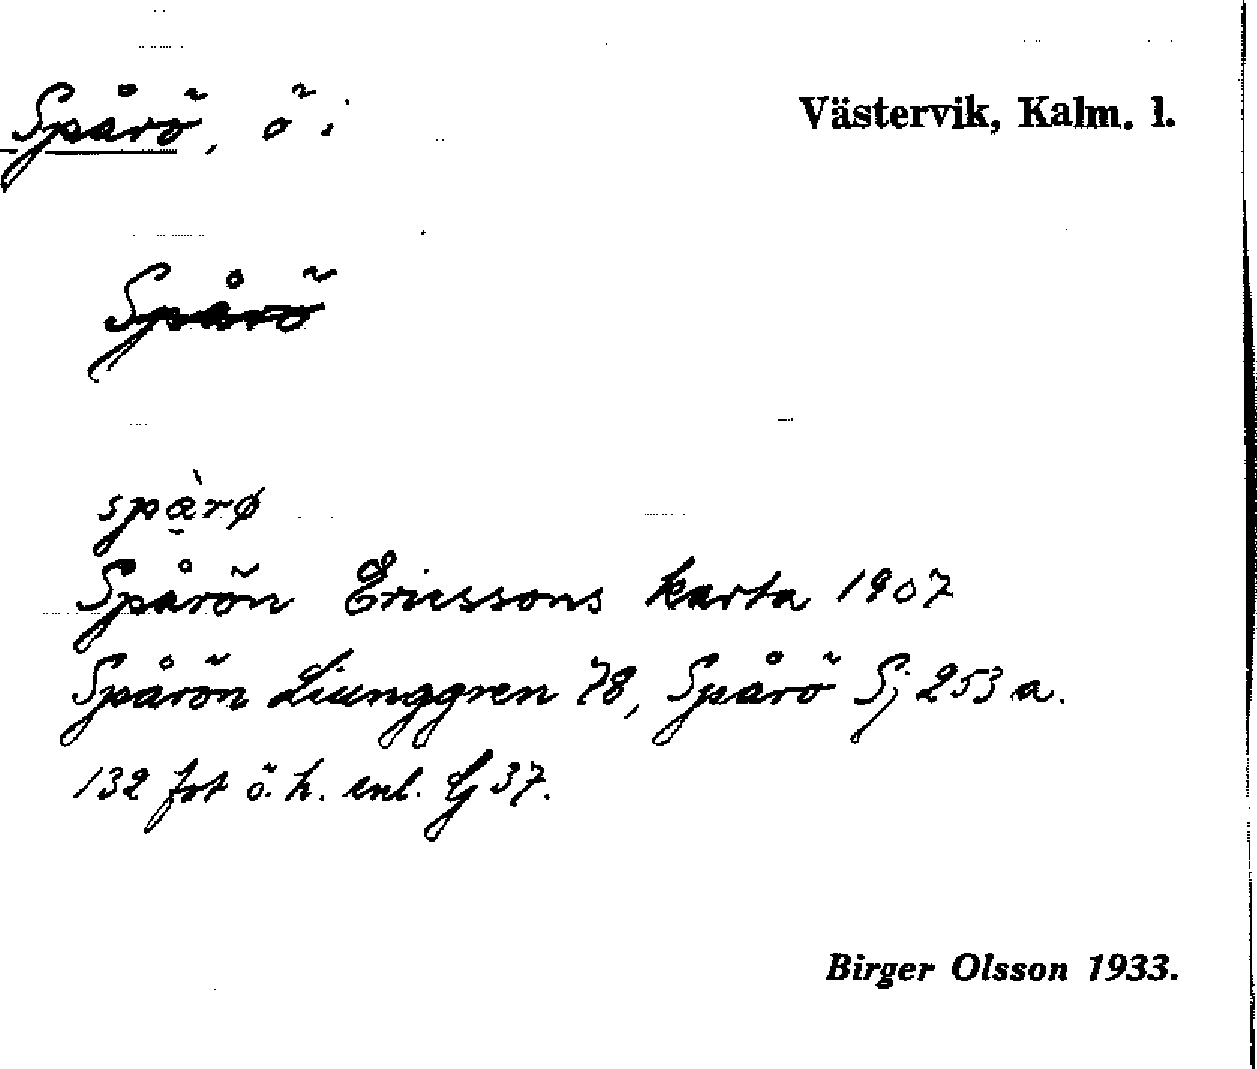 Spårö, ö i
Västervik, Kalm. l.
Spårö
spàrø
Spårön Ericssons karta 1907
Spårön Liunggren 78, Spårö Sj 253 a.
132 fot ö. h. enl. G 37.
Birger Olsson 1933.